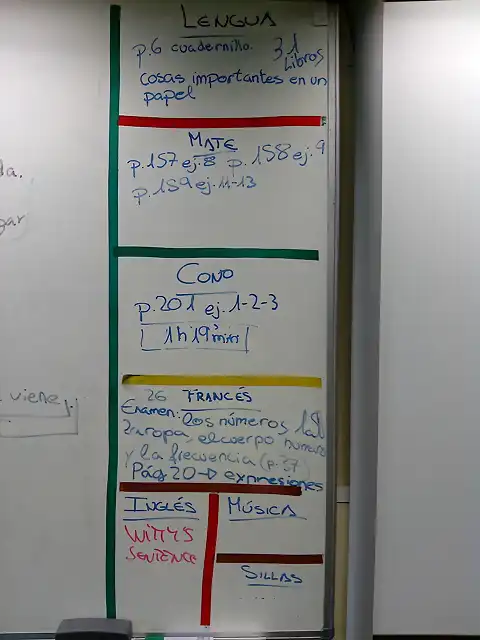 LENGUA
p.6 cuadernillo. 31
Libros
cosas importantes en un
papel
da.
MATE
p.157 ej.8 p.158 ej.9
p.159 ej.11-13
gar
CONO
p.201 ej.1-2-3
1h 19 min
26 FRANCÉS
viene,
Examen: los números
ropa, el cuerpo humano
y la frecuencia (p.37)
Pág 20 → expresiones
INGLÉS
MÚSICA
SENTENCE
SILLAS